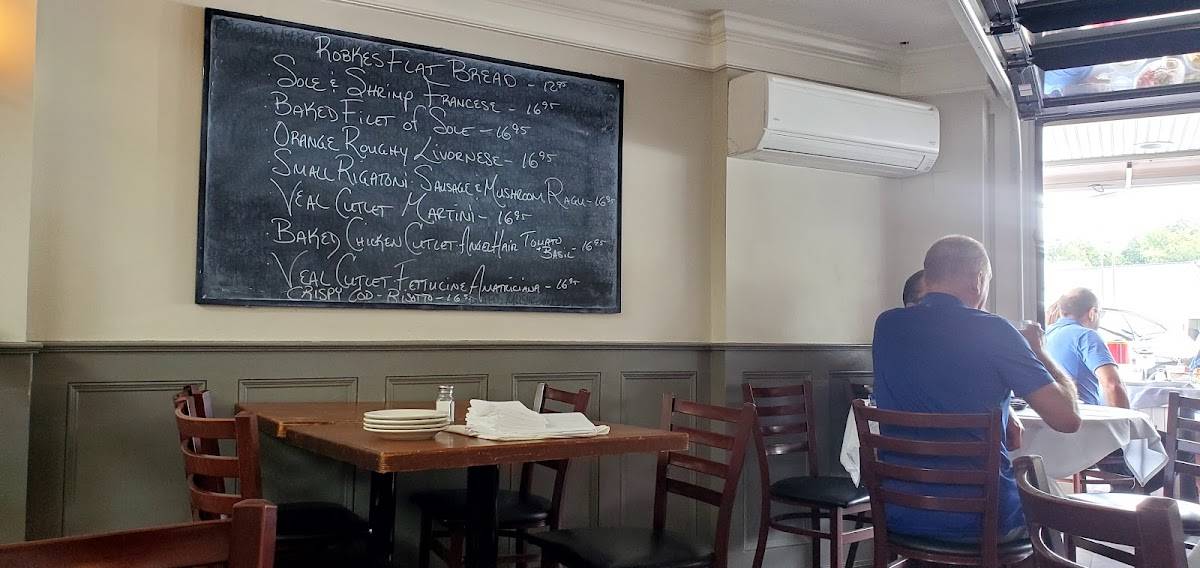 ROBKES FLAT BREAD - 12.95
· SOLE & SHRIMP FRANCESE - 16.95
· BAKED FILET OF SOLE - 16.95
· ORANGE ROUGHY LIVORNESE - 16.95
· SMALL RIGATONI: SAUSAGE & MUSHROOM RAGU - 16.95
· VEAL CUTLET MARTINI - 16.95
· BAKED CHICKEN CUTLET ANGEL HAIR TOMATO + BASIL - 16.95
· VEAL CUTLET FETTUCINE AMATRICIANA - 16.95
CRISPY COD - RISOTTO - 16.95